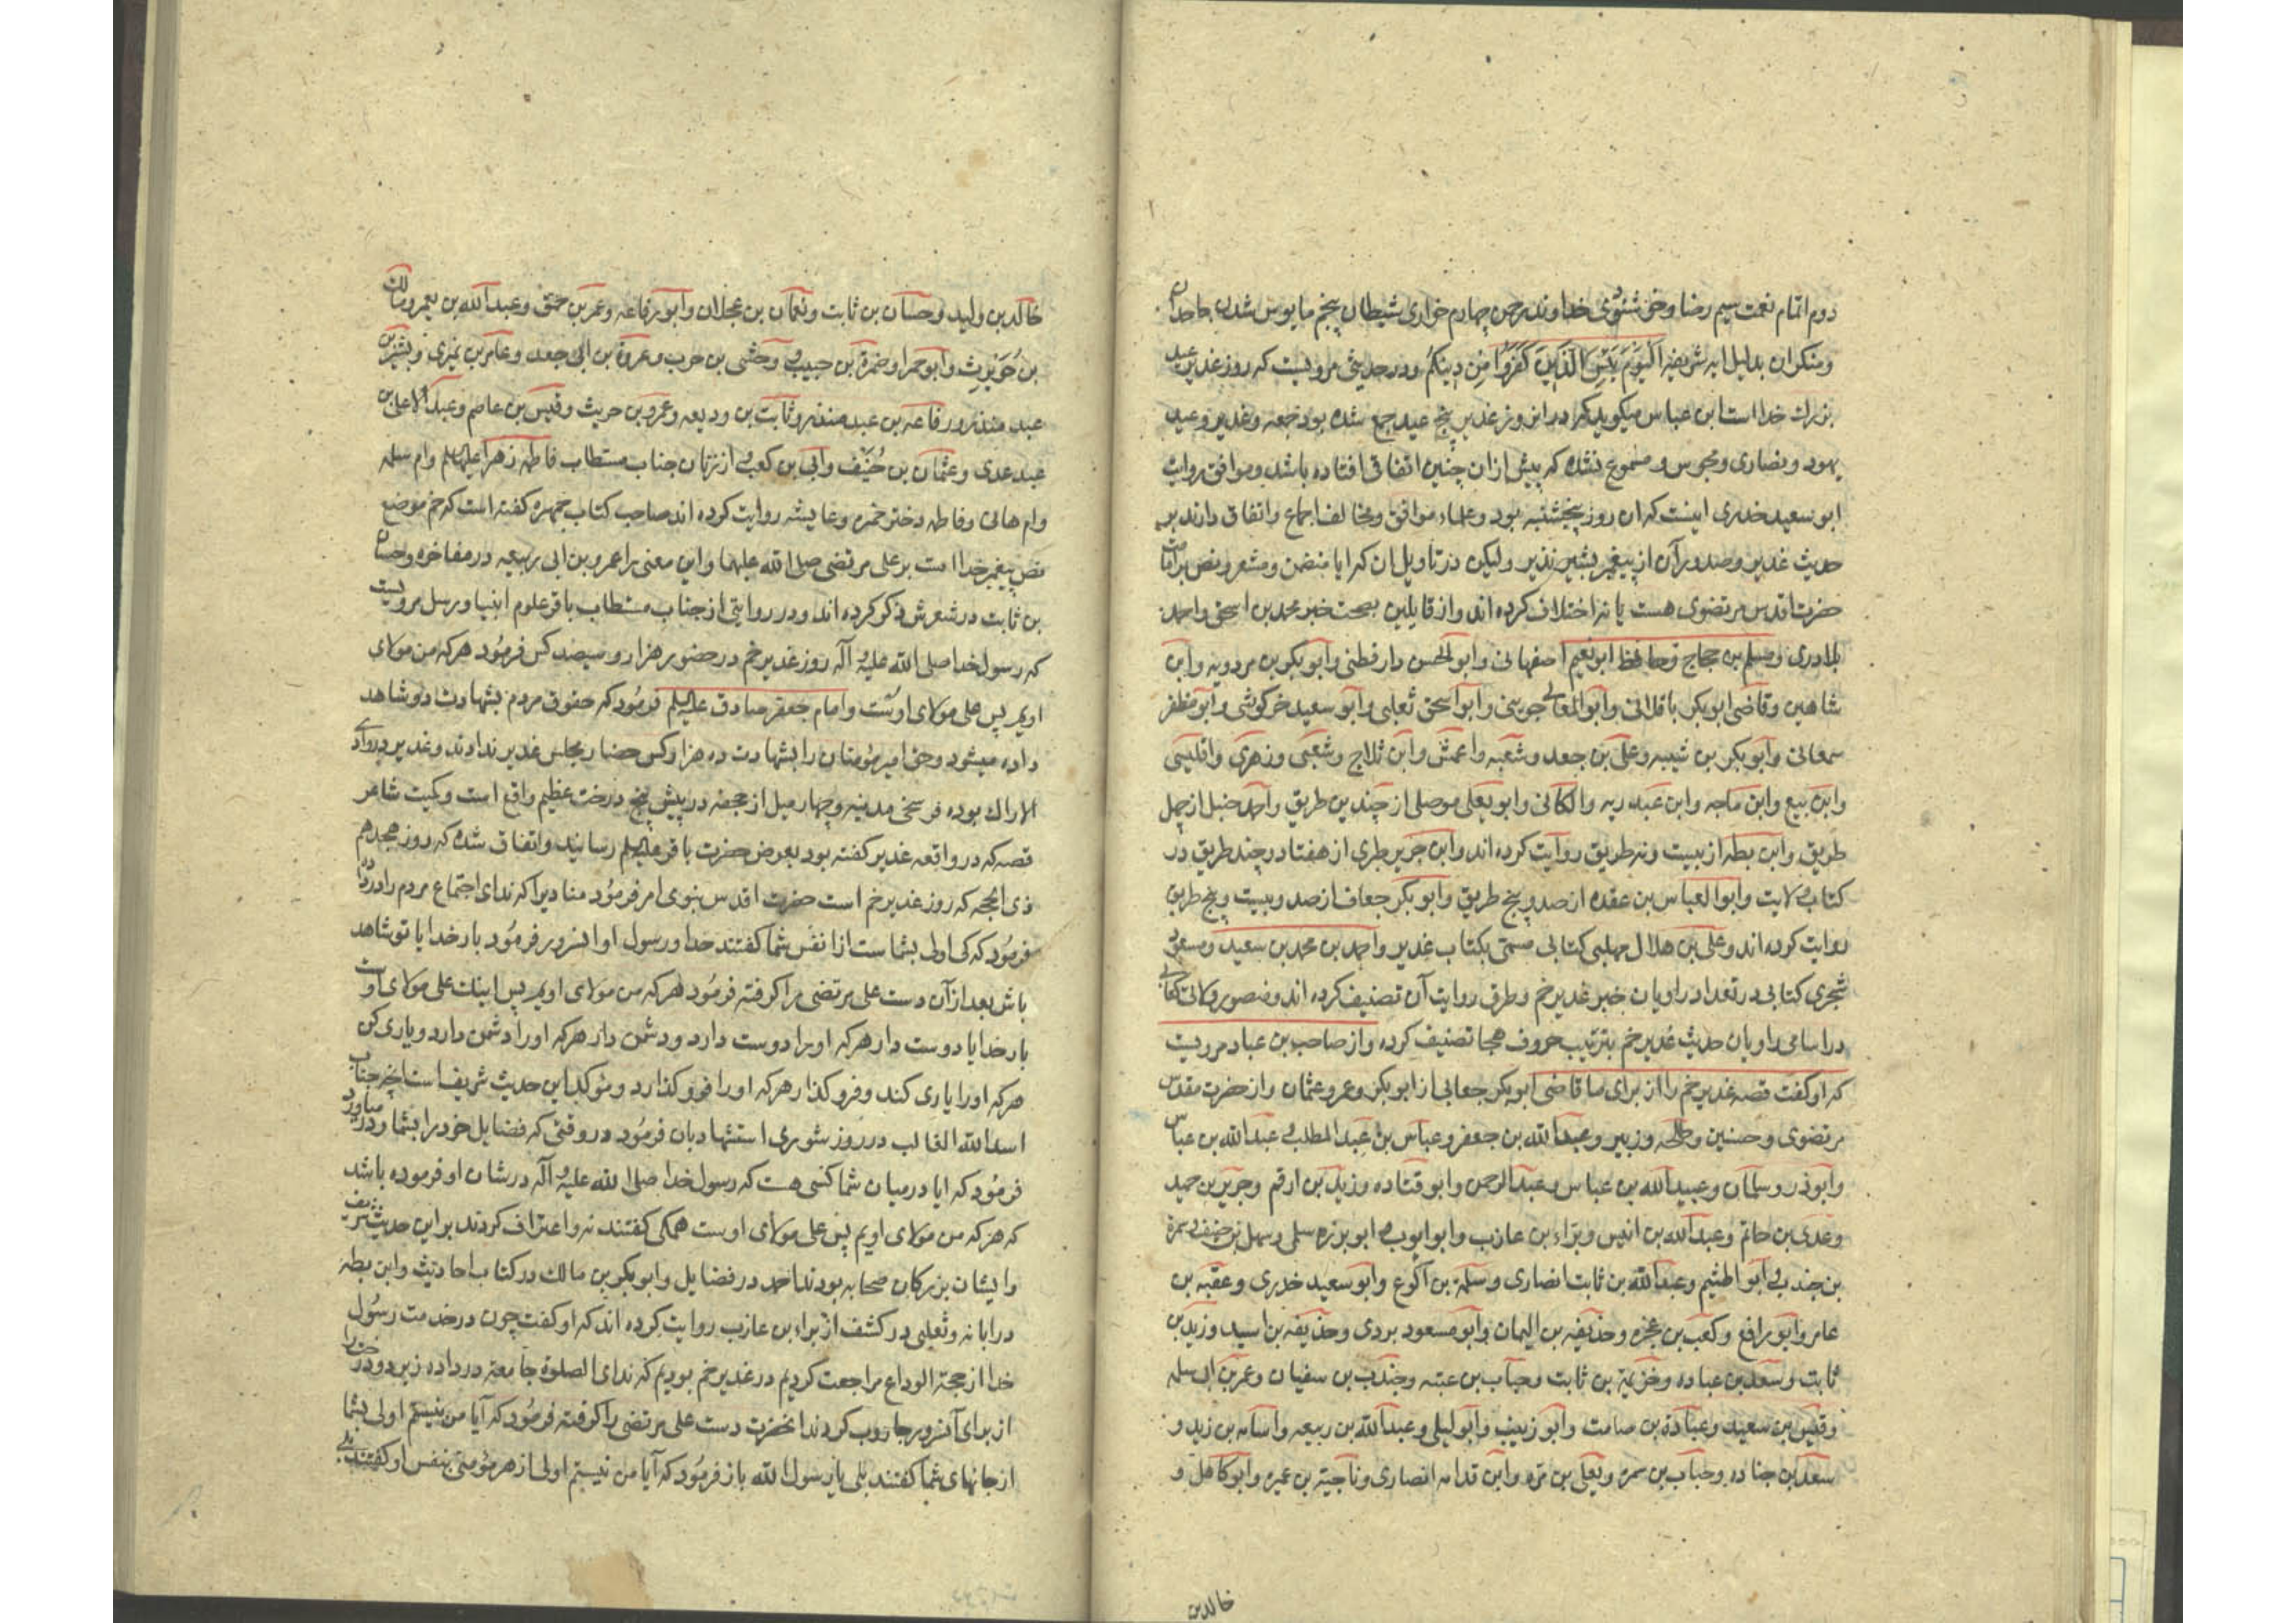 دوم اتمام نعمت سیم رضا و خوشنودی خداوند رحمن چهارم خواری شیطان پنجم مایوس شدن جاحدان
و منکران بدلیل ایه شریفه اَلْیَوْمَ یَئِسَ الَّذینَ کَفَرُوا مِن دینِکُم و در حدیثی مرویست که روز غدیر عید
بزرك خدا است ابن عباس میکوید که در این روز غدیر پنج عید جمع شده بود جمعه و غدیر و عید
یهود و نصاری و مجوس و مسموع نشده که پیش از ان چنین اتفاقی افتاده باشد و موافق روایت
ابو سعید خدری اینست که ان روز پنجشنبه بود و علماء موافق و مخالف اجماع و اتفاق دارند بر
حدیث غدیر و صدور آن از پیغمبر بشیر نذیر و لیکن در تاویل ان که ایا متضمن و مشعر و نص بر امامت
حضرت اقدس مرتضوی هست یا نه اختلاف کرده اند و از قایلین بصحت خبر محمد بن اسحق و احمد
بلادری و مسلم بن حجاج و حافظ ابو نعیم اصفهانی و ابو الحسن دارقطنی و ابو بکر بن مردویه و ابن
شاهین و قاضی ابو بکر باقلانی و ابو المعالی جوینی و ابو اسحق ثعلبی و ابو سعید خرکوشی و ابو مظفر
سمعانی و ابو بکر بن شیبه و علی بن جعد و شعبه و اعمش و ابن ثلاج و شعبی و زهری و اقلیشی
و ابن بیع و ابن ماجه و ابن عبد ربه و الکانی و ابو یعلی موصلی از چندین طریق و احمد حنبل از چهل
طریق و ابن بطه از بیست و نه طریق روایت کرده اند و ابن جریر طبری از هفتاد و چند طریق در
کتاب ولایت و ابو العباس بن عقده از صد و پنج طریق و ابو بکر جعابی از صد و بیست و پنج طریق
روایت کرده اند و علی بن هلال مهلبی کتابی مسمی بکتاب غدیر و احمد بن محمد بن سعید و مسعود
شجری کتابی در تعداد راویان خبر غدیر خم و طرق روایت آن تصنیف کرده اند و منصور کتابی
در اسامی راویان حدیث غدیر خم بترتیب حروف هجا تصنیف کرده و از صاحب بن عباد مرویست
که او کفت قصه غدیر خم را از برای ما قاضی ابو بکر جعابی از ابو بکر و عمر و عثمان و از حضرت مقدس
مرتضوی و حسنین و طلحه و زبیر و عبد الله بن جعفر و عباس بن عبد المطلب و عبد الله بن عباس
و ابو ذر و سلمان و عبید الله بن عباس و عبد الرحمن و ابو قتاده و زید بن ارقم و جریر بن حمید
و عدی بن حاتم و عبد الله بن انیس و براء بن عازب و ابو ایوب و ابو برزه سلمی و سهل بن حنیف و سمرة
بن جندب و ابو الهثیم و عبد الله بن ثابت انصاری و سلمة بن اکوع و ابو سعید خدری و عقبه بن
عامر و ابو رافع و کعب بن عجره و حذیفه بن الیمان و ابو مسعود بردی و حذیفه بن اسید و زید بن
ثابت و سعد بن عباده و خزیمة بن ثابت و حباب بن عتبه و جندب بن سفیان و عمر بن ابی سلمه
و قیس بن سعید و عبادة بن صامت و ابو زینب و ابو لیلی و عبد الله بن ربیعه و اسامه بن زید و
سعد بن جناده و حباب بن سمره و یعلی بن مره و ابن قدامه انصاری و ناجیة بن عمیره و ابو کاهل و
خالد بن
خالد بن ولید و حسان بن ثابت و نعمان بن عجلان و ابو رفاعه و عمر بن حمق و عبد الله بن یعمر و مالك
بن حُوَیرِث و ابو حمرا و ضمرة بن حبیب و وحشی بن حرب و عروة بن ابی جعد و عامر بن نمیری و بشیر بن
عبد منذر و رفاعه بن عبد منذر و ثابت بن ودیعه و عمرو بن حریث و قیس بن عاصم و عبد الاعلی بن
عبد عدی و عثمان بن حُنَیف و ابی بن کعب و از زنان جناب مستطاب فاطمه زهرا علیها سلم و ام سلمه
و ام هانی و فاطمه دختر حمزه و عایشه روایت کرده اند صاحب کتاب جمهره کفته است که خم موضع
نص پیغمبر خدا است بر علی مرتضی صلی الله علیهما و این معنی را عمرو بن ابی ربیعه در مفاخره و حسان
بن ثابت در شعرش ذکر کرده اند و در روایتی از جناب مستطاب باقر علوم انبیا و رسل مرویست
که رسول خدا صلی الله علیه و آله روز غدیر خم در حضور هزار و سیصد کس فرمُود هرکه من مولای
اویم پس علی مولای اوست و امام جعفر صادق علیه السلم فرمُود که حقوق مردم بشهادت دو شاهد
داده میشود و حق امیر مؤمنان را بشهادت ده هزار کس حضار مجلس غدیر ندادند و غدیر در وادی
الاراك بوده فرسخی مدینه و چهار میل از جحفه در پیش پنج درخت عظیم واقع است و کمیت شاعر
قصه که در واقعه غدیر کفته بود بعرض حضرت باقر علیه السلم رسانید و اتفاق شده که روز هجدهم
ذی الحجه که روز غدیر خم است حضرت اقدس نبوی امر فرمُود منادیرا که ندای اجتماع مردم را در داده
فرمُود که کی اولی بشماست از نفس شما کفتند خدا و رسول او انسرور فرمُود بار خدایا تو شاهد
باش بعد از آن دست علی مرتضی را کرفته فرمُود هرکه من مولای اویم پس اینك علی مولای اوست
بار خدایا دوست دار هرکه او را دوست دارد و دشمن دار هرکه او را دشمن دارد و یاری کن
هرکه او را یاری کند و فرو کذار هرکه او را فرو کذارد و مؤکد این حدیث شریف است انچه جناب
اسد الله الغالب در روز شوری استشهاد بان فرمُود در وقتی که فضایل خود را بشما و در میاورد
فرمُود که ایا در میان شما کسی هست که رسول خدا صلی الله علیه و آله در شان او فرموده باشد
که هر که من مولای اویم پس علی مولای اوست همکی کفتند نه و اعتراف کردند بر این حدیث شریف
و ایشان بزرکان صحابه بودند احمد در فضایل و ابو بکر بن مالك در کتاب احادیث و ابن بطه
در ابانه و ثعلبی در کشف از براء بن عازب روایت کرده اند که او کفت چون در خدمت رسُول
خدا از حجة الوداع مراجعت کردیم در غدیر خم بودیم که ندای الصلوة جامعة در داده زیر دو درخت را
از برای آنسرور جاروب کردند انحضرت دست علی مرتضی را کرفته فرمُود که آیا من نیستم اولی بشما
از جانهای شما کفتند بلی یا رسول الله باز فرمُود که آیا من نیستم اولی از هر مؤمنی بنفس او کفتند بلی